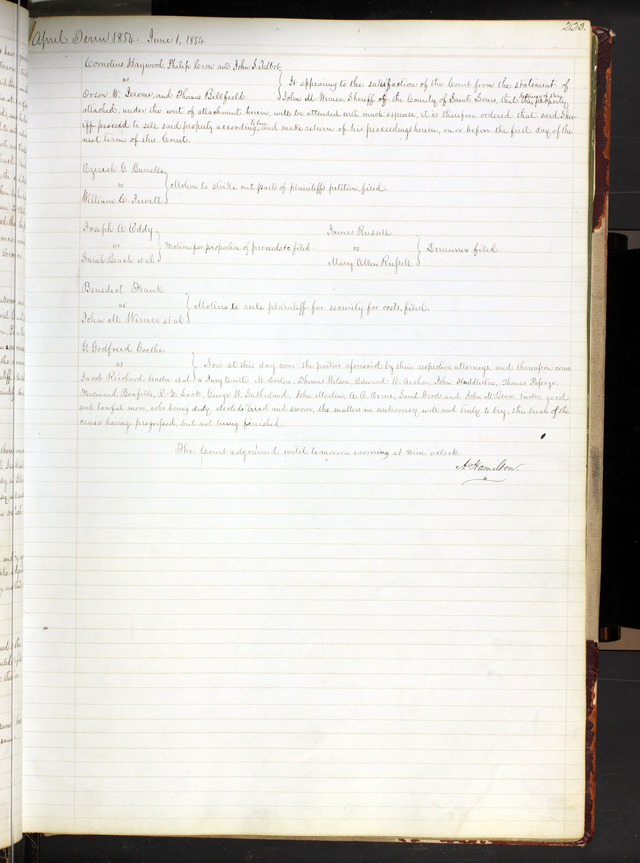 223.
April Term 1854. June 1, 1854
Cornelius Haywood Philip Crow and John S Talbot
vs
It appearing to the satisfaction of the Court from the statement of
Orson W. Jerome, and Thomas Bellfield
John M. Wimer, Sheriff of the County of Saint Louis, that the keeping of the property
attached, under the writ of attachment herein, will be attended with much expense, it is therefore ordered that said Sher-
iff proceed to sell said property according to law, and make return of his proceedings herein, on or before the first day of the
next term of this Court.
Ezeriah G. 
vs
Motion to strike out parts of plaintiff's petition filed
William C. Jewett
Joseph A Eddy
vs
Motion for proportion of proceeds &c filed.
Sarah Beach et al
James Russell
vs
Demurrer filed.
Mary Ellen Russell
Benedict Frank
vs
Motion to rule plaintiff for security for costs, filed.
John M Wimer et al
G Godfreid Goethe
vs
Now at this day come the parties aforesaid by their respective attorneys, and thereupon come
Jacob et al a Jury to wit: M. Thomas Wilson, Edward John Huddleston, Thomas
Ferdinand George W Sutherland, John Martin, A. C. Orme, Saml Woods and John M Dean twelve good
and lawful men, who being duly elected tried and sworn, the matters in controversy well and truly to try, the trial of the
cause having progressed, but not being finished
The Court adjourned until tomorrow morning at nine oclock
A Hamilton.